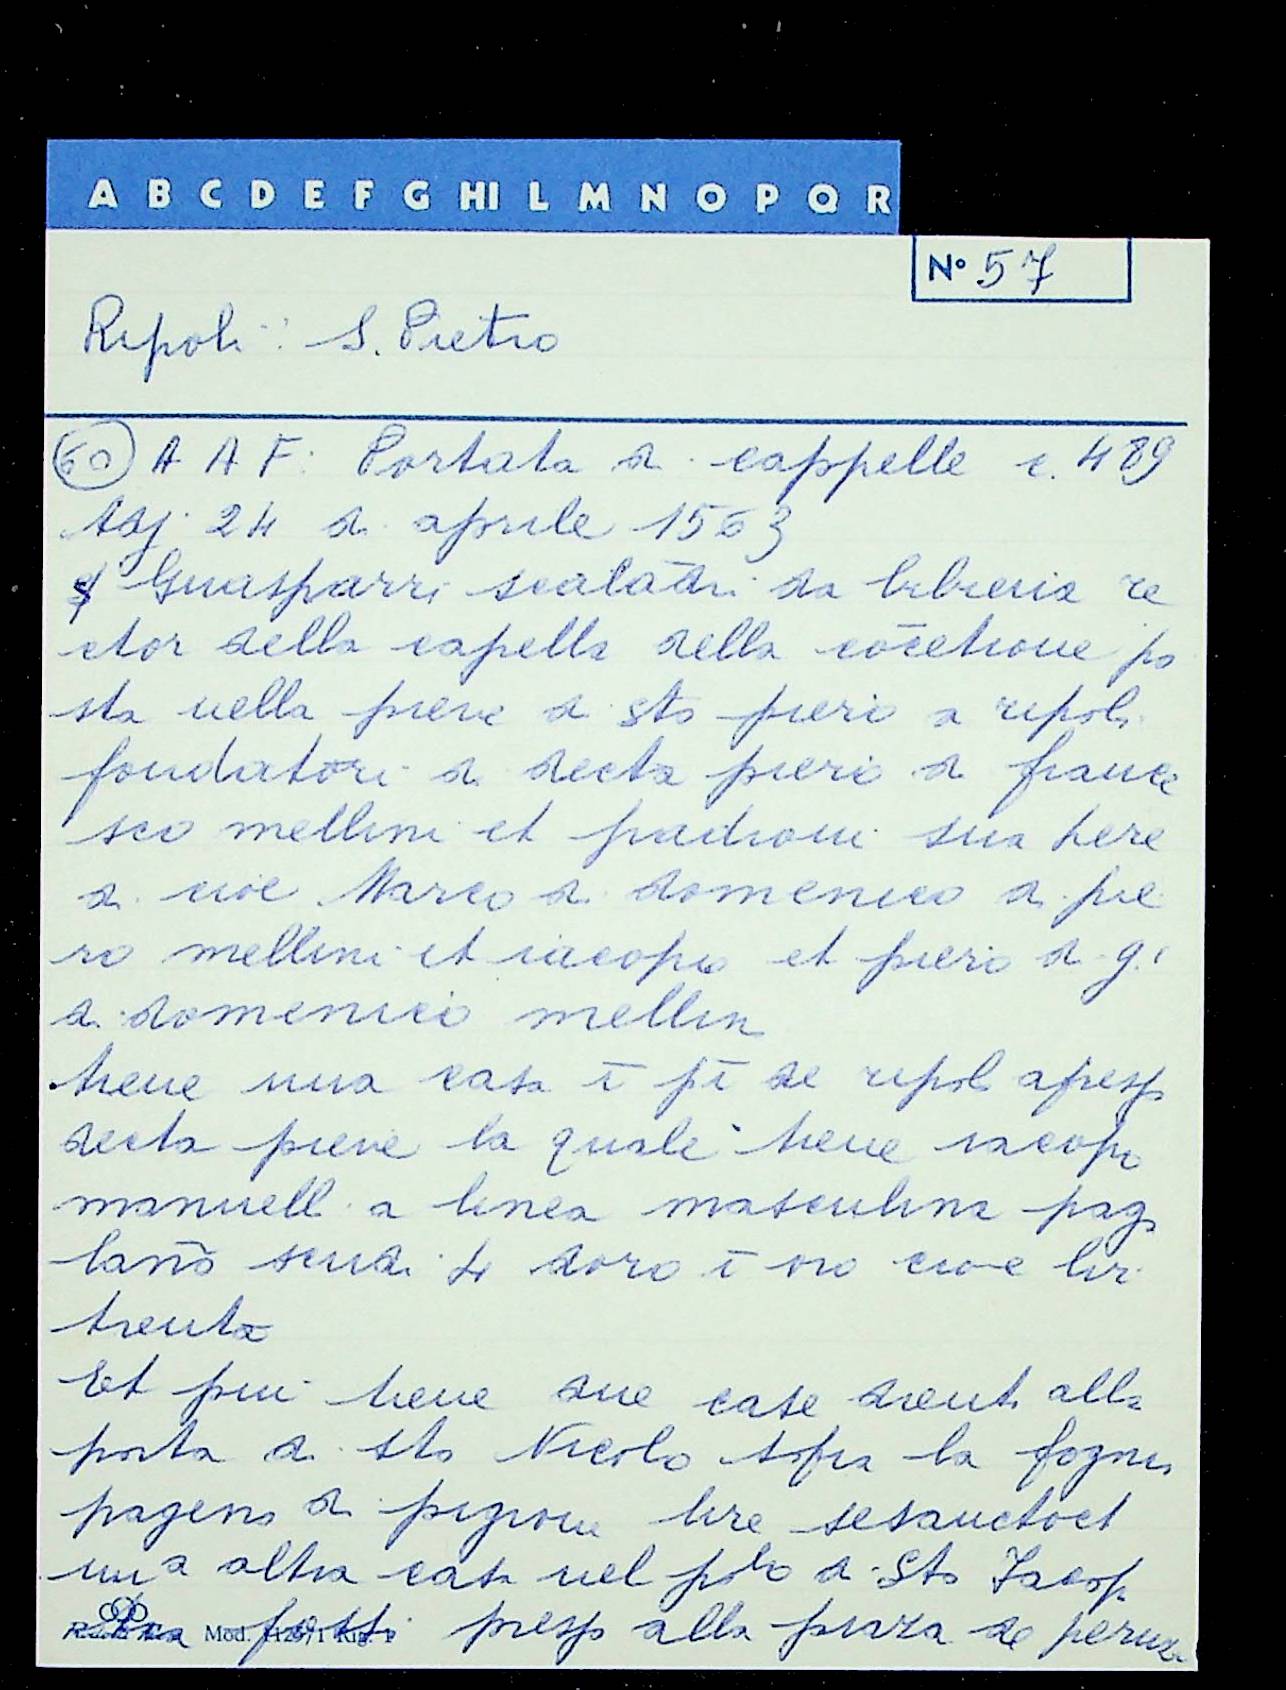 A B C D E F G HI L M N O P Q R
N° 57
Ripoli: S. Pietro
60 A A F: Portata di cappelle c. 489
Adj 24 di aprile 1563
Guasparri da libreria re
ctor della capella della cōcetione po
sta nella pieve di sto piero a ripoli
fondatori di decta piero di france
sco mellini et padroni sua here
di cioè Marco di domenico di pie
ro mellini et iacopo et piero di g.i
di domenico mellin
tiene una casa ī pī de ripoli apesp
decta pieve la quale tiene iacopo
manuelli a linea masculina pag
lano scudi 4 doro ī oro cioe lir
trenta
Et piu tiene due case drento alla
porta di sto Nicolo sopra la
pagens di pigione lire sesanctoct
una altra casa nel polo di Sto Jacop
fossi presp alla piaza de peruzi
Mod.